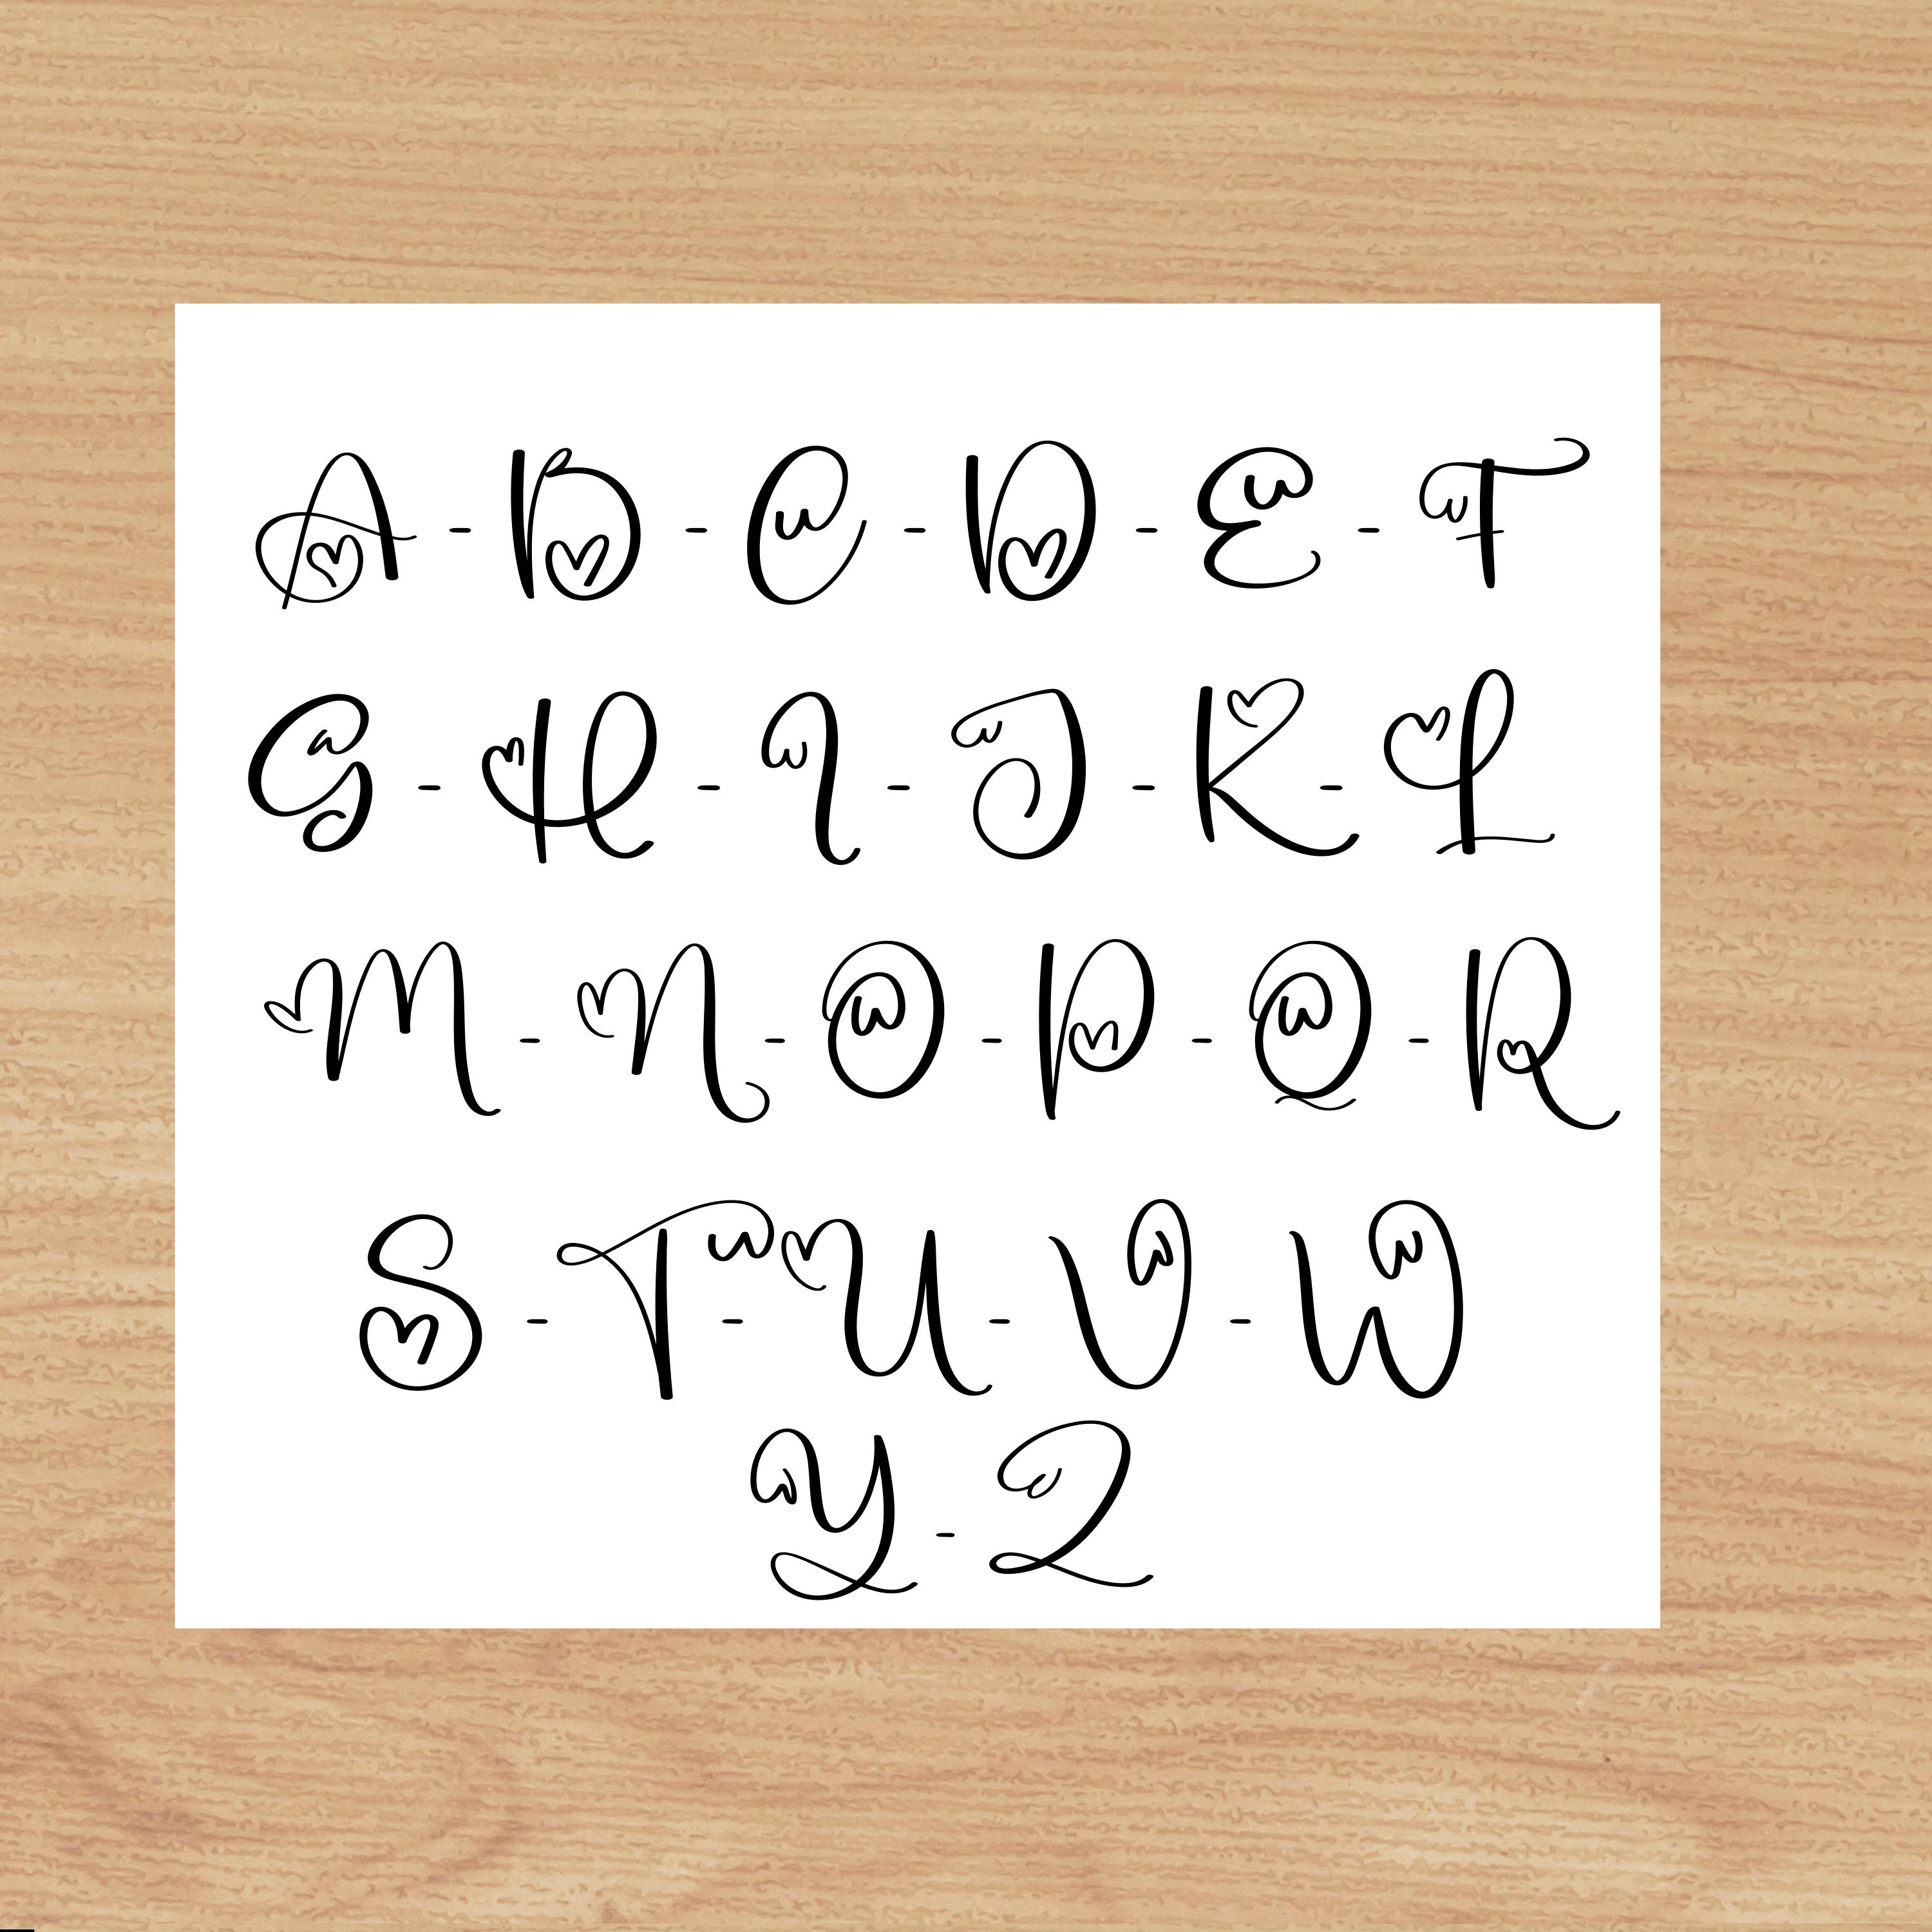 A - B - C - D - E - F
G - H - I - J - K - L
M - N - O - P - Q - R
S - T - U - V - W
Y - Z